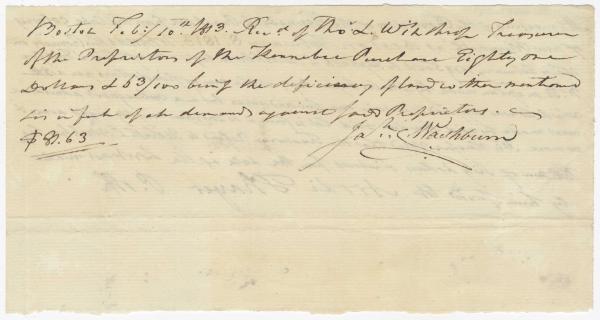 Boston Feby. 10th 1813. Recd of Thos L. Winthrop Treasurer
of the Proprietors of the Kennebec Purchase Eighty one
Dollars & 63/100 being the deficiency of land within mentioned
& is in full of all demands against said Proprietors.
$81.63
C. Washburn